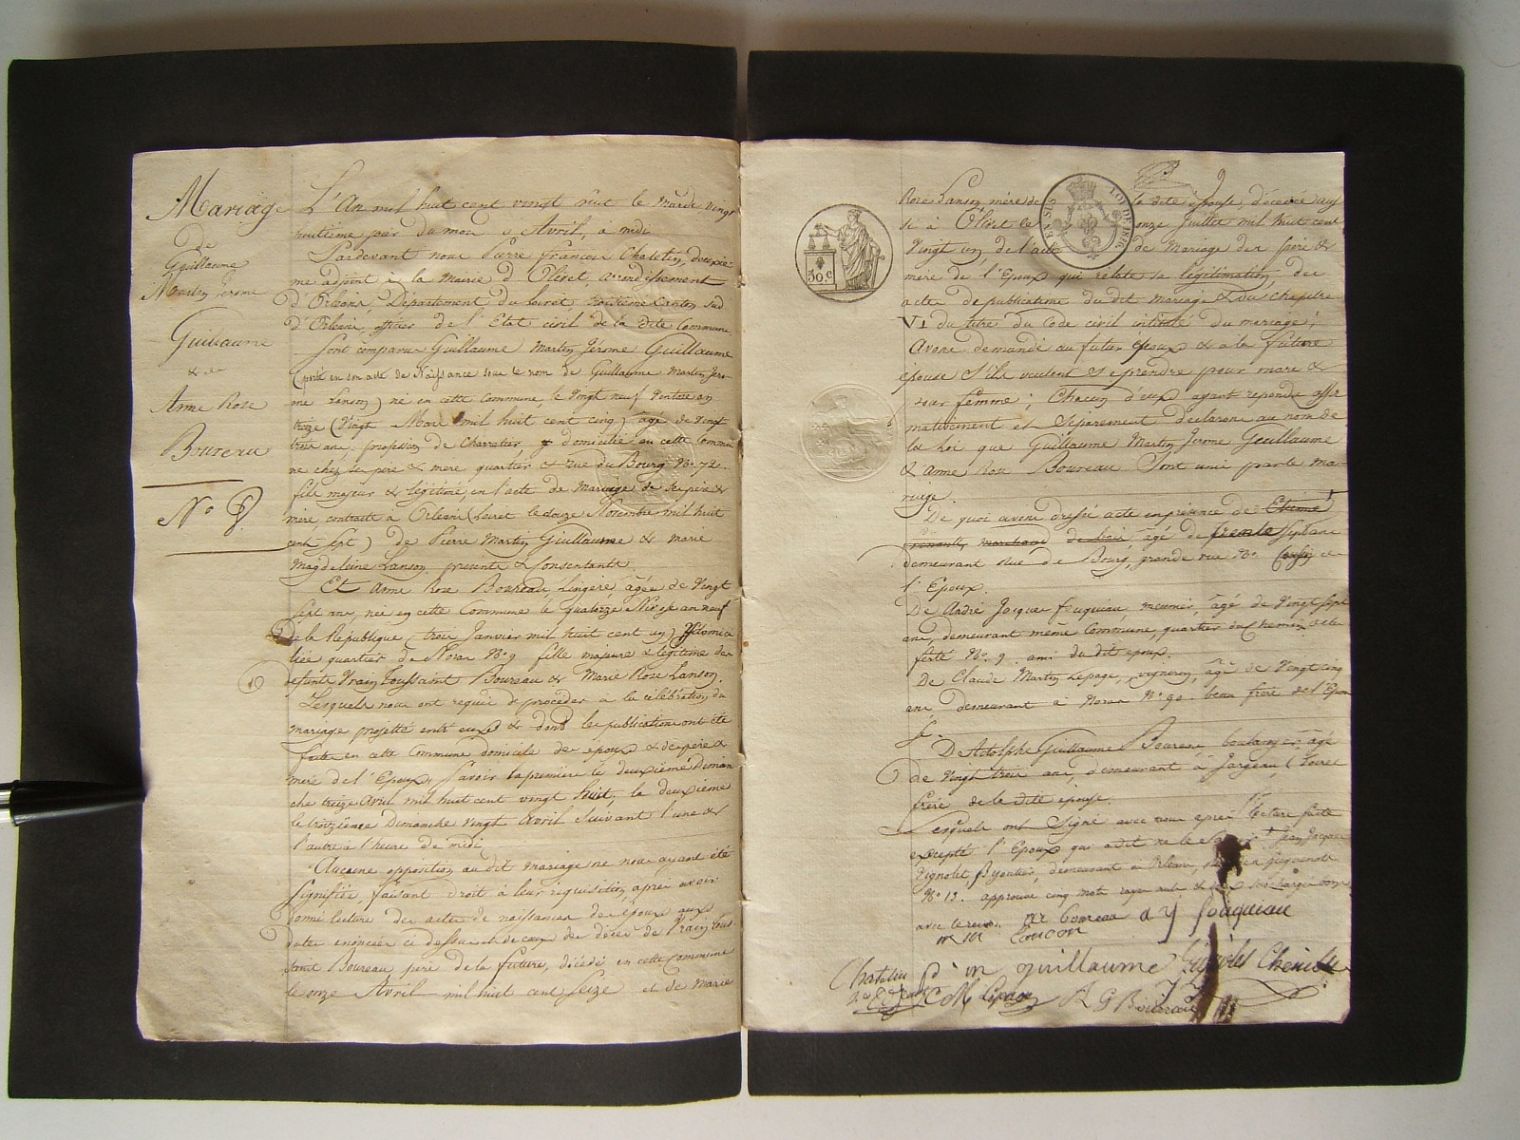 Mariage
de
Guillaume
Martin Jerome
Guillaume
& de
Anne Rose
Boureau
N° 8
L'An mil huit cent vingt huit le mardi vingt
huitieme jour du mois d'Avril, a midi
Pardevant nous Pierre François Chatelin, deuxie-
me adjoint à la Mairie d'Olivet, arrondissement
d'Orleans, Departement du loiret, troisieme Canton sud
d'Orleans, officier de l'Etat civil de la dite Commune.
Sont comparus Guillaume Martin Jerome Guillaume
(porté en son acte de Naissance sous le nom de Guillaume Martin Jero-
me Lanson) né en cette Commune le vingt neuf Ventose an
treize (vingt Mars mil huit cent cinq) âgé de vingt
trois ans, profession de Charretier & domicilié en cette Commu
ne chez ses pere & mere quartier & rue du Bourg N° 72.
fils majeur & légitimé en l'acte de Mariage de ses pere &
mere, contracté à Orleans (Loiret le douze Novembre mil huit
cent sept) de Pierre Martin Guillaume & Marie
Magdeleine Lanson presents & consentants.
Et Anne Rose Boureau, Lingere, âgée de vingt
sept ans, née en cette Commune le quatorze Nivose an neuf
de la République (trois Janvier mil huit cent un) & domici
liée quartier de Noras N° 9 fille majeure & légitime de
defunts Vrain Toussaint Boureau & Marie Rose Lanson.
Lesquels nous ont requis de procéder à la célébration du
mariage projetté entr'eux & dont les publications ont été
faites en cette Commune domicile des epoux & des pere &
mere de l'Epoux, Savoir la premiere le deuxième Diman
che treize Avril mil huit cent vingt huit, le deuxieme
le troizième Dimanche vingt Avril Suivant l'une &
l'autre à l'heure de midi
Aucune opposition au dit mariage ne nous ayant été
signifiée, faisant droit à leur réquisition, après avoir
donné lecture des actes de naissances des epoux aux
dates enoncées ci dessus & de ceux des décès de Vrain Tous
saint Boureau pere de la future, décédé en cette Commune
le onze Avril mil huit cent seize et de Marie
9
Rose Lanson, mère de la dite épouse, décédée aus
si à Olivet le onze Juillet mil huit cent
vingt un, de l'acte de Mariage des père &
mère de l'Epoux qui relate sa légitimation, des
actes de publications du dit mariage & du chapitre
VI du titre du Code civil intitulé du mariage;
Avons demandé au futur époux & à la future
épouse s'ils veulent se prendre pour mari &
pour femme; Chacun d'eux ayant repondu affir
mativement et Séparément declarons au nom de
la loi que Guillaume Martin Jerome Guillaume
& Anne Rose Boureau Sont unis par le ma-
riage.
De quoi avons dressé acte en présence de
âgé de trente Sept ans
demeurant rue de Bourg, grande rue N° Cousin de
l'Epoux.
De André Jacques fouquiau meunier, âgé de vingt sept
ans, demeurant même Commune, quartier du Chemin de la
ferté N° 9. ami du dit epoux.
De Claude Martin Lepage, vigneron, âgé de vingt cinq
ans demeurant à Noras N° 90. beau frere de l'Epou
se.
D'Adolphe Guillaume Boureau boulanger, âgé
de vingt trois ans, demeurant à Jargeau, (Loiret
frère de la dite épouse.
Lesquels ont Signé avec nous après lecture faite
excepté l'Epoux qui a dit ne le savoir
Jean Jacques
Vignolet, Byoutier, demeurant à Orleans,
N° 13. approuvé cinq mots rayés nuls
avec le renvoi.
ar boureau
a j fouquiau
m m Lancon
p m guillaume
Vignolet
Chatelin
C M Lepage
A G Boureau
30.c
EN SUS
LOI DE 1816